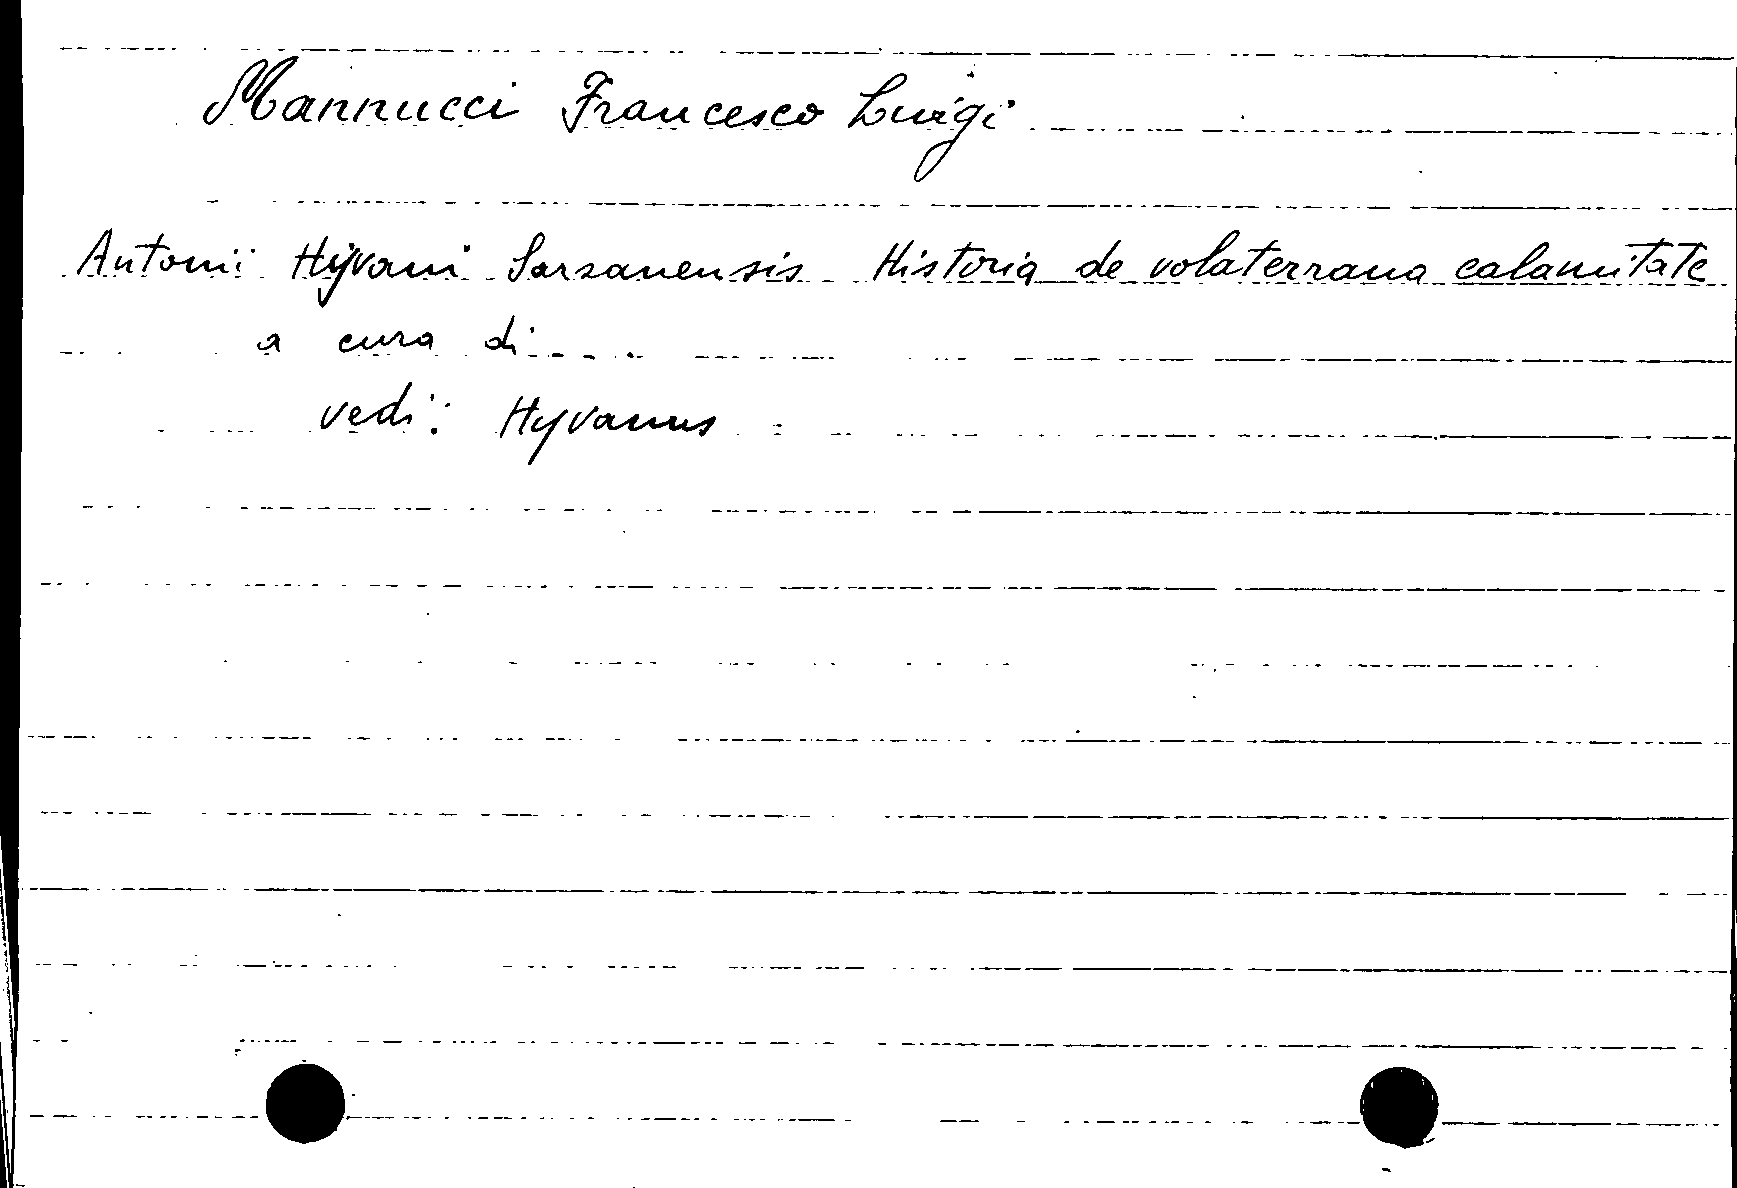 Mannucci Francesco Luigi
Antonii Hyvani Sarzanensis Historia de volaterrana calamitate
a cura di....
vedi: Hyvanus